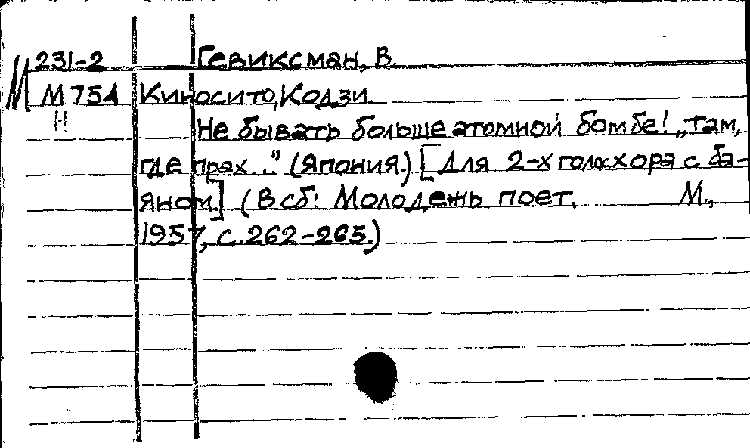 231-2 Гевиксман, В.
М 754 Киносито, Кодзи.
Н Не бывать больше атомной бомбе! „Там,
где прах..." (Япония.) [Для 2-х голосн хора с ба-
яном.] (В сб: Молодежь поет. М.,
1957, с. 262-265.)